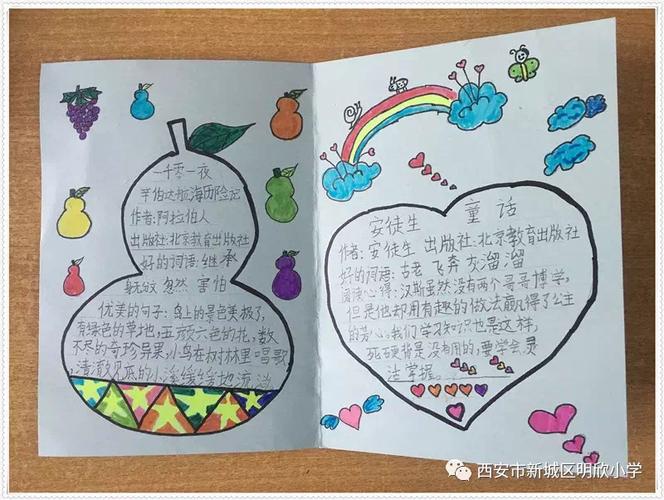 一千零一夜
辛伯达航海历险记
作者:阿拉伯人
出版社:北京教育出版社
好的词语:继承
忽然 害怕
优美的句子:岛上的景色美极了,
有绿色的草地,五颜六色的花,数
不尽的奇珍异果,小鸟在树林里唱歌,
清澈见底的小溪缓缓地流淌
安徒生 童话
作者:安徒生 出版社:北京教育出版社
好的词语:古老 飞奔 灰溜溜
阅读心得:汉斯虽然没有两个哥哥博学,
但是他却用有趣的做法赢得了公主
的芳心。我们学习知识也是这样,
死记硬背是没有用的,要学会灵
活掌握。
西安市新城区明欣小学